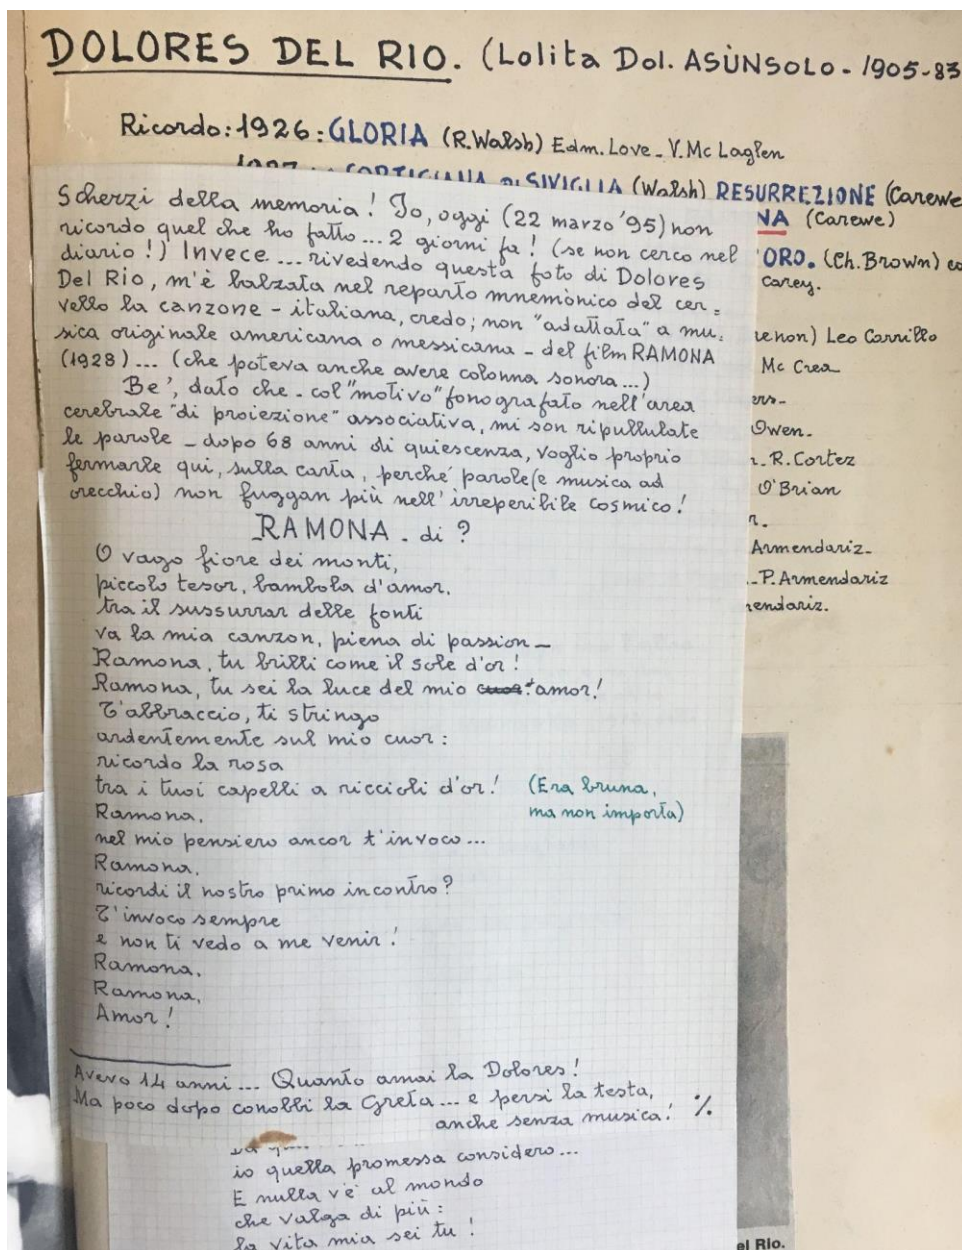 DOLORES DEL RIO. (Lolita Dol. ASÙNSOLO - 1905-83
Ricordo: 1926: GLORIA (R. Walsh) Edm. Love - V. Mc Laglen
1927 CORTIGIANA DI SIVIGLIA (Walsh) RESURREZIONE (Carewe
NA (Carewe)
ORO. (Ch. Brown) co
Carey.
renon) Leo Carrillo
Mc Crea
ers-
Owen.
R. Cortez
O'Brian
Armendariz-
- P. Armendariz
mendariz.
Scherzi della memoria! Io, oggi (22 marzo '95) non
ricordo quel che ho fatto... 2 giorni fa! (se non cerco nel
diario!) Invece... rivedendo questa foto di Dolores
Del Rio, m'è balzata nel reparto mnemònico del cer=
vello la canzone - italiana, credo; non "adattata" a mu=
sica originale americana o messicana - del film RAMONA
(1928)... (che poteva anche avere colonna sonora...)
Be', dato che - col "motivo" fonografato nell'area
cerebrale "di proiezione" associativa, mi son ripullulate
le parole - dopo 68 anni di quiescenza, voglio proprio
fermarle qui, sulla carta, perché parole (e musica ad
orecchio) non fuggan più nell'irreperibile cosmico!
RAMONA - di ?
O vago fiore dei monti,
piccolo tesor, bambola d'amor,
tra il sussurrar delle fonti
va la mia canzon, piena di passion -
Ramona, tu brilli come il sole d'or!
Ramona, tu sei la luce del mio cuor! amor!
T'abbraccio, ti stringo
ardentemente sul mio cuor:
ricordo la rosa
tra i tuoi capelli a riccioli d'or! (Era bruna,
ma non importa)
Ramona,
nel mio pensiero ancor t'invoco...
Ramona,
ricordi il nostro primo incontro?
T'invoco sempre
e non ti vedo a me venir!
Ramona,
Ramona,
Amor!
Avevo 14 anni... Quanto amai la Dolores!
Ma poco dopo conobbi la Greta... e persi la testa,
anche senza musica! %
io quella promessa considero...
E nulla v'è al mondo
che valga di più:
la vita mia sei tu!
el Rio.